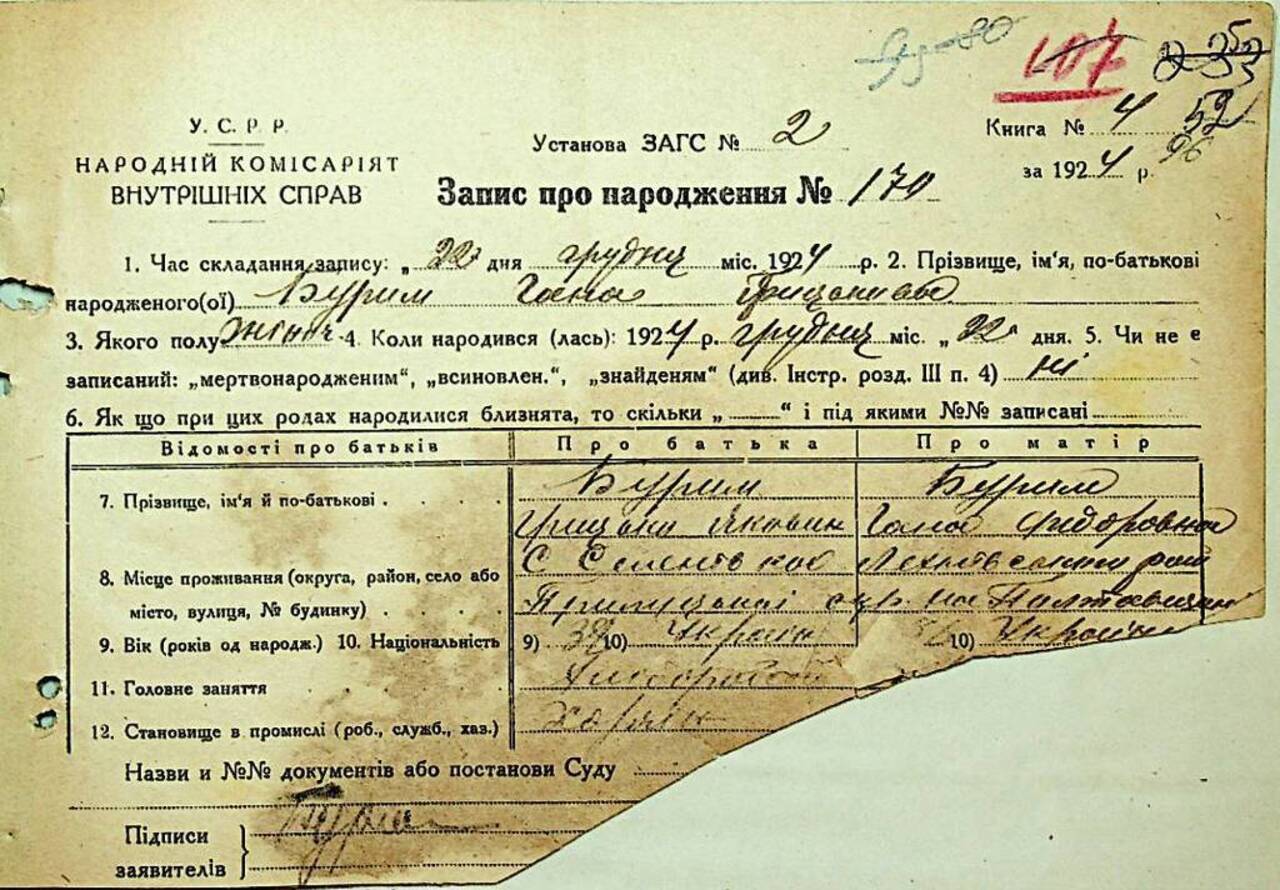 95-80 107
У. С. Р Р. Установа ЗАГС № 2 Книга № 4 52
НАРОДНІЙ КОМІСАРІЯТ за 1924 р. 96
ВНУТРІШНІХ СПРАВ Запис про народження № 170
1. Час складання запису: „ 22 дня грудня міс. 1924 р. 2. Прізвище, ім'я, по-батькові
народженого(ої) Бурим Гана
3. Якого полу жіноч 4. Коли народився (лась): 1924 р. грудня міс. „ 22 дня. 5. Чи не є
записаний: „мертвонародженим“, „всиновлен.“, „знайденям“ (див. Інстр. розд. III п. 4) ні
6. Як що при цих родах народилися близнята, то скільки „ “ і під якими №№ записані
Відомості про батьків Про батька Про матір
7. Прізвище, ім'я й по-батькові Бурим Бурим
Грицько Якович Гана Федоровна
8. Місце проживання (округа, район, село або С
місто, вулиця, № будинку) Прилуцької окр. на Полтавщині
9. Вік (років од народж.) 10. Національність 9) 10) Україн 10) Україн
11. Головне заняття Хлібороб
12. Становище в промислі (роб., служб., хаз.)
Назви и №№ документів або постанови Суду
Підписи
заявителів